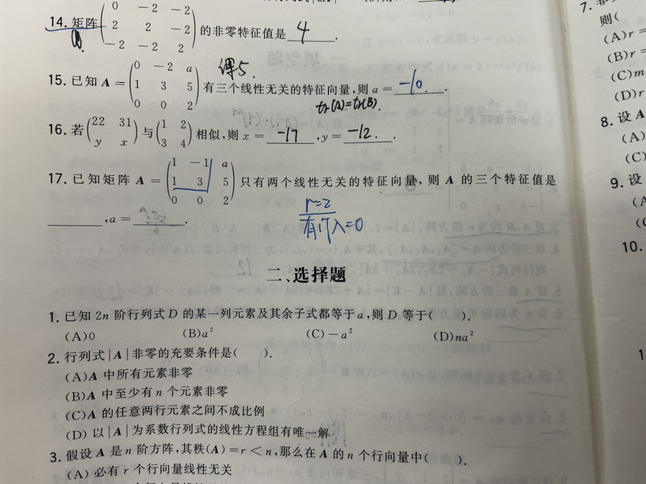 0 -2 -2
14. 矩阵 2 2 -2 的非零特征值是 4 .
-2 -2 2
0 -2 a
15. 已知 A = 1 3 5 有三个线性无关的特征向量,则 a = -10 .
0 0 2
tr(A)=tr(B).
16. 若 (22 31 与 (1 2 相似,则 x = -17 , y = -12 .
y x) 3 4)
1 -1 a
17. 已知矩阵 A = 1 3 5 只有两个线性无关的特征向量, 则 A 的三个特征值是
0 0 2
r=2
, a = .
λ=0
二、选择题
1. 已知 2n 阶行列式 D 的某一列元素及其余子式都等于 a ,则 D 等于( ).
(A)0 (B)a² (C)-a² (D)na²
2. 行列式|A|非零的充要条件是( ).
(A)A 中所有元素非零
(B)A 中至少有 n 个元素非零
(C)A 的任意两行元素之间不成比例
(D) 以|A|为系数行列式的线性方程组有唯一解
3. 假设 A 是 n 阶方阵,其秩(A)=r<n,那么在 A 的 n 个行向量中( ).
(A) 必有 r 个行向量线性无关
7.
则(
(A)r =
(B)r =
(C)m
(D)r
8. 设 A
(A)
(C)
9. 设
(A
(C
10.
1